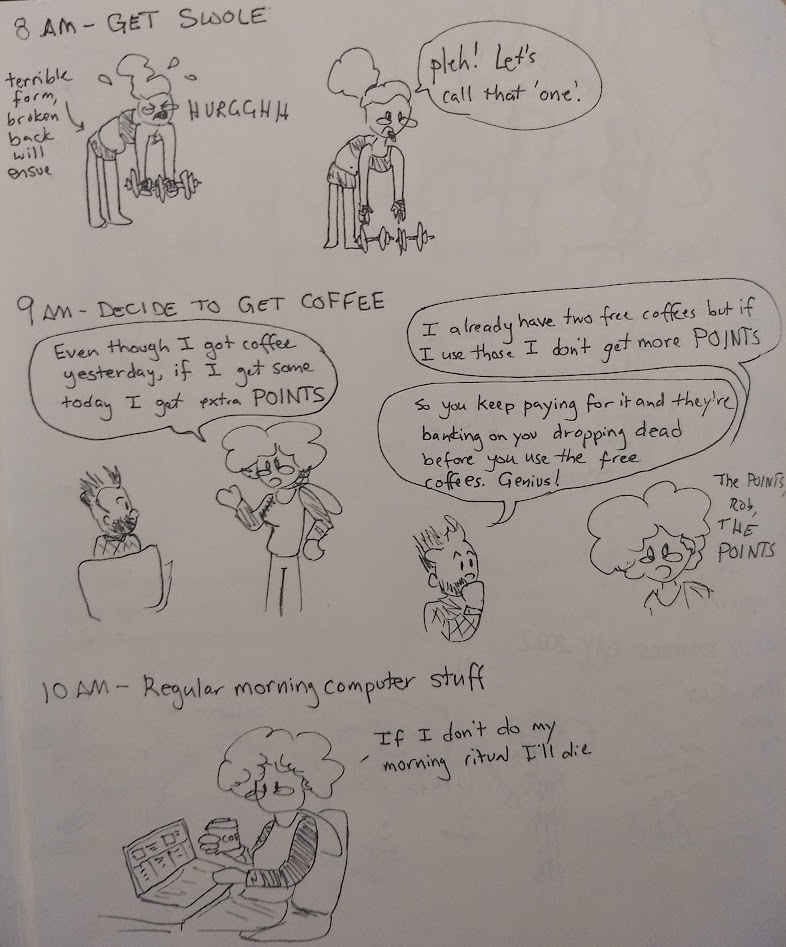 8 AM - GET SWOLE
terrible
form,
broken
back
will
ensue
HURGGHH
pleh! Let's
call that 'one'.
9 AM - DECIDE TO GET COFFEE
Even though I got coffee
yesterday, if I get some
today I get extra POINTS
I already have two free coffees but if
I use those I don't get more POINTS
So you keep paying for it and they're
banking on you dropping dead
before you use the free
coffees. Genius!
The POINTS,
Rob,
THE
POINTS
10 AM - Regular morning computer stuff
If I don't do my
morning ritual I'll die
COF